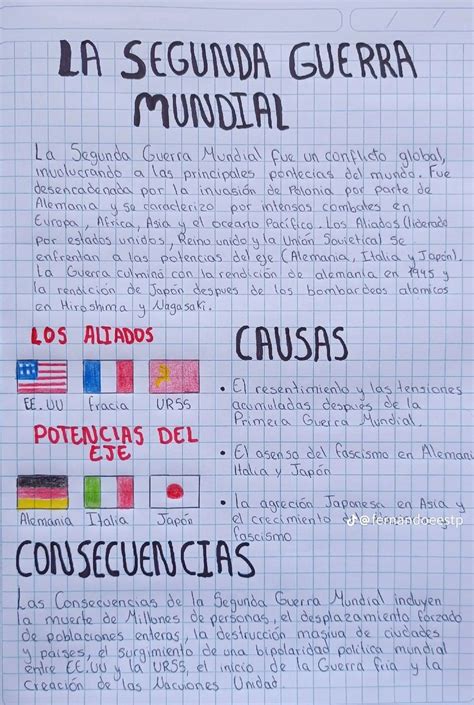 LA SEGUNDA GUERRA
MUNDIAL
La Segunda Guerra Mundial fue un conflicto global,
involucrando a las principales pontecias del mundo. Fue
desencadenada por la invasión de Polonia por parte de
Alemania y se caracterizo por intensos combates en
Europa, Africa, Asia y el oceano Pacífico. Los Aliados (liderado
por estados unidos, Reino unido y la Unión Sovietica) se
enfrentan a las potencias del eje (Alemania, Italia y Japón).
La Guerra culminó con la rendición de alemania en 1945 y
la rendición de Japón despues de los bombardeos atomicos
en Hiroshma y Nagasaki.
LOS ALIADOS
EE.UU fracia URSS
POTENCIAS DEL
EJE
Alemania Italia Japón
CAUSAS
• El resentimiento y las tensiones
acumuladas después de la
Primera Guerra Mundial.
• El asenso del fascismo en Alemani
Italia y Japón
• la agreción Japonesa en Asia y
el crecimiento
fascismo
@fernandoeestp
CONSECUENCIAS
Las Consecuencias de la Segunda Guerra Mundial incluyen
la muerte de Millones de personas, el desplazamiento forzado
de poblaciones enteras, la destrucción masiva de ciudades
y paises, el surgimiento de una bipolaridad política mundial
entre EE.UU y la URSS, el inicio de la Guerra fria y la
Creación de las Nacuones Unidad.